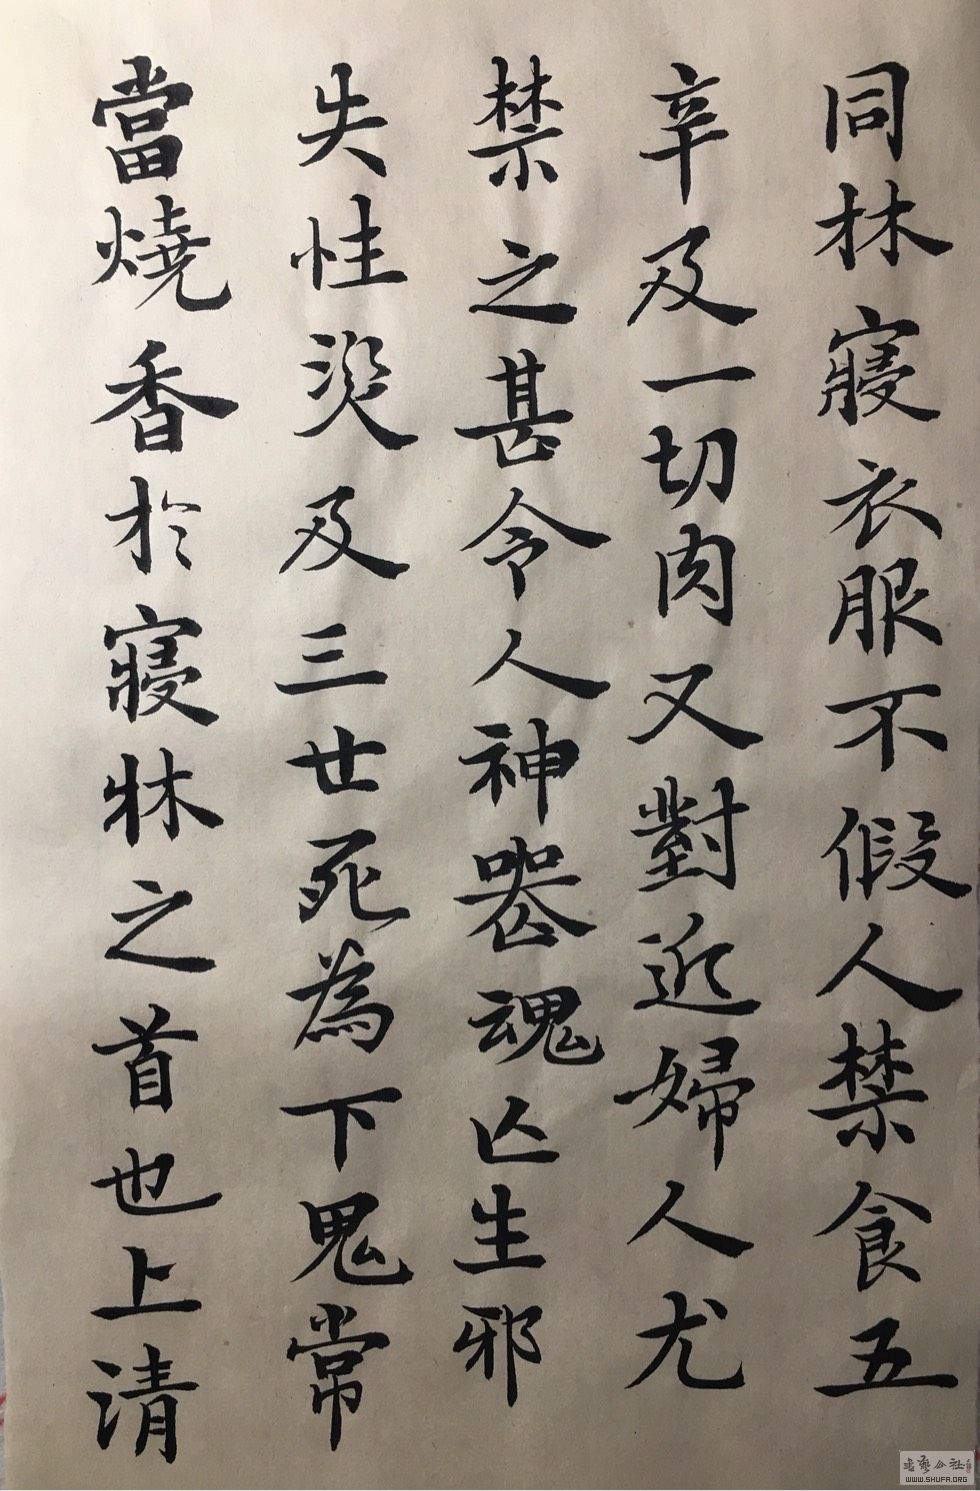 同林寢衣服不假人禁食五
辛及一切肉又對近婦人尤
禁之甚令人神喪魂亡生邪
失性災及三世死為下鬼常
當燒香於寢牀之首也上清
WWW.SHUFA.ORG